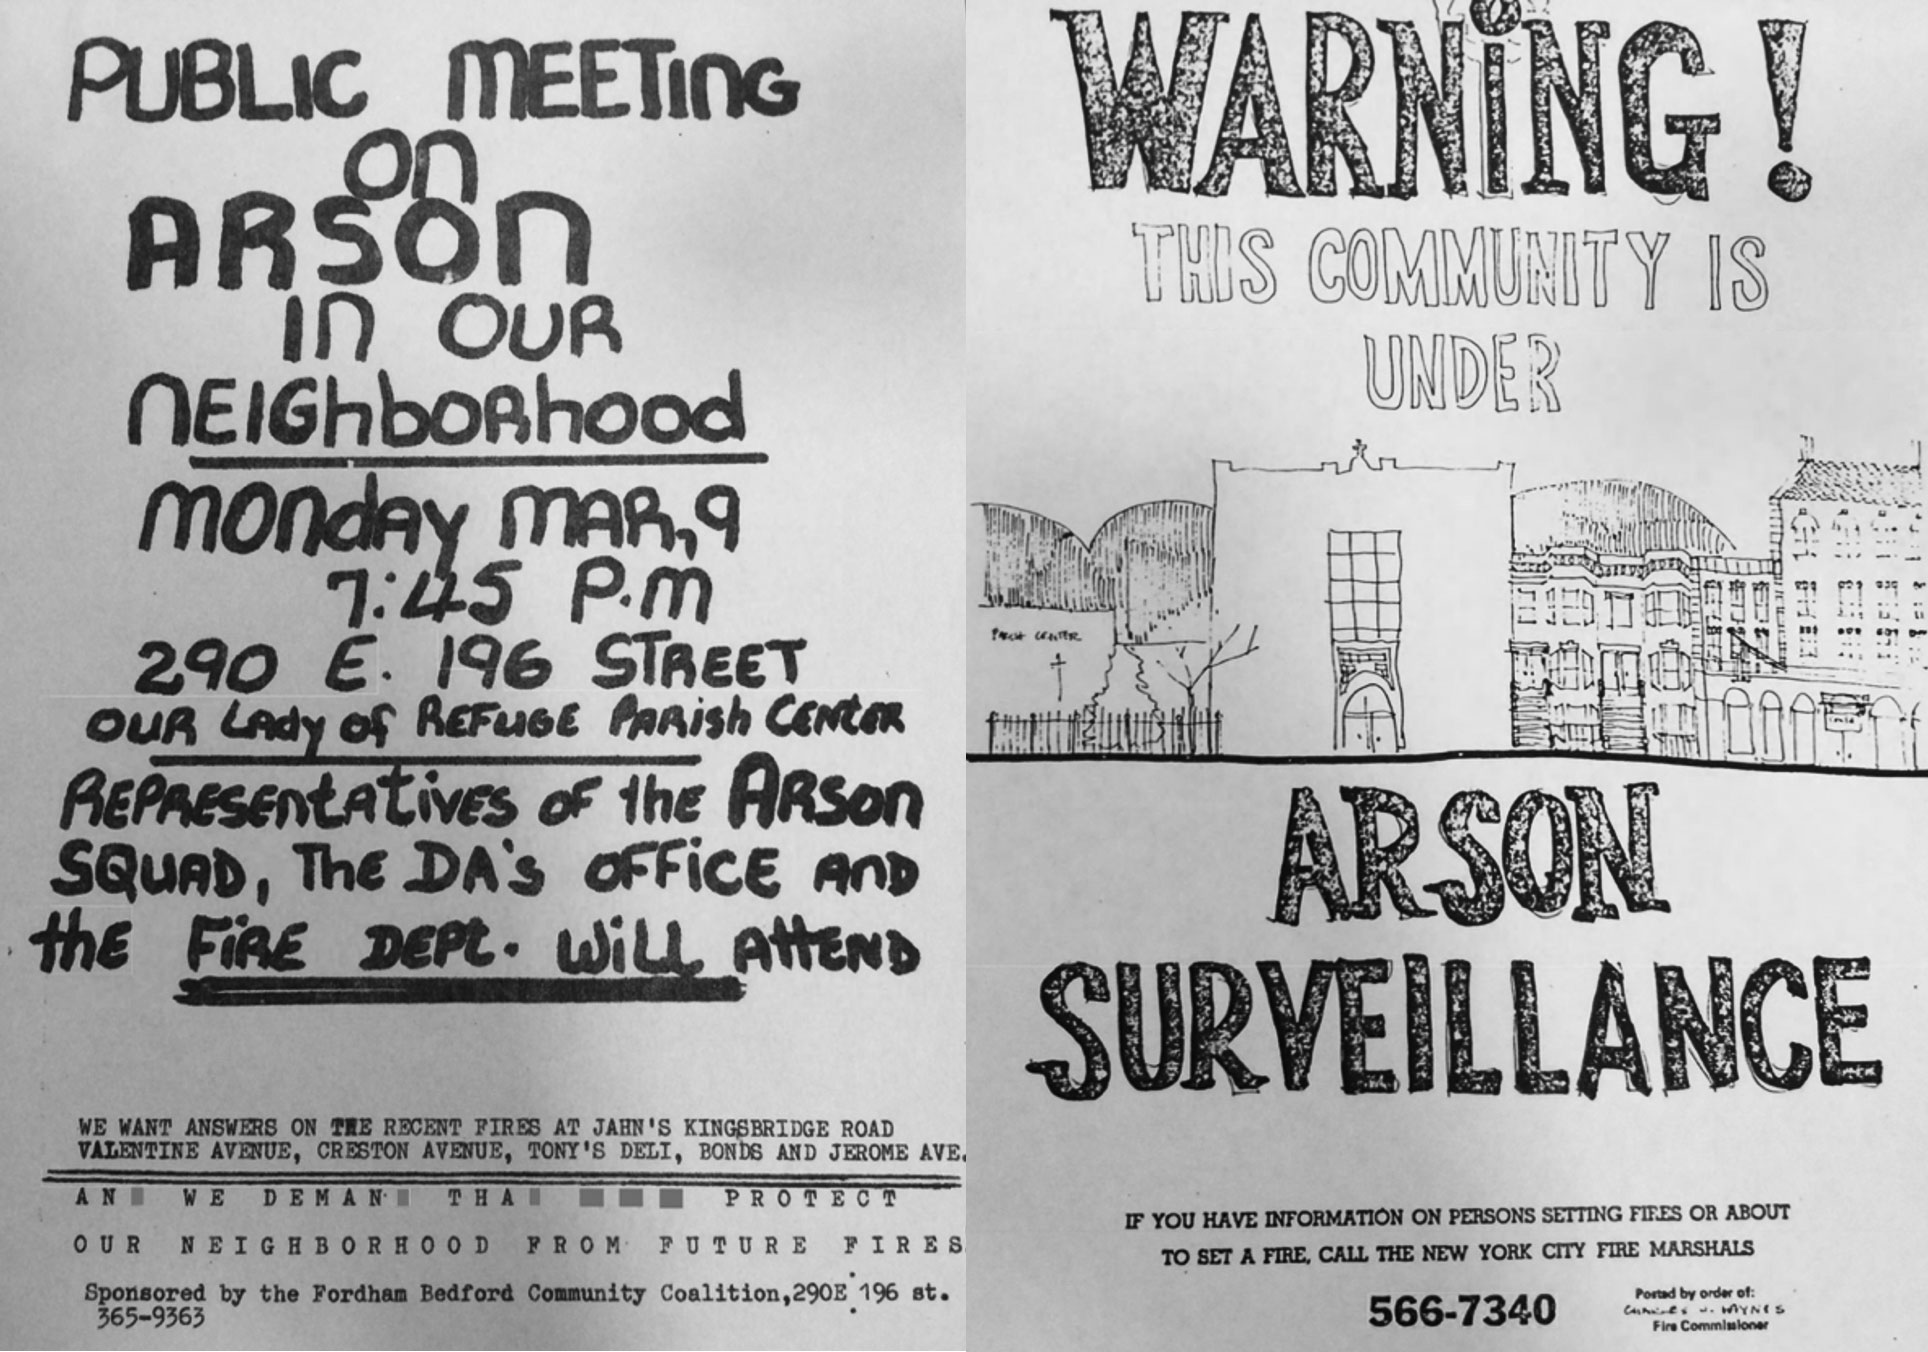 PUBLIC MEETING
on
ARSON
IN OUR
NEIGhboRhood
monday MAR, 9
7:45 P.m
290 E. 196 STREET
OUR Lady of REFUGE PARish CENTER
REPRESEntAtivES OF the ARSon
SQUAD, The DA's OFFiCE AnD
the FiRE DEPt. Will AttEND
WE WANT ANSWERS ON THE RECENT FIRES AT JAHN'S KINGSBRIDGE ROAD
VALENTINE AVENUE, CRESTON AVENUE, TONY'S DELI, BONDS AND JEROME AVE.
WE PROTECT
OUR NEIGHBORHOOD FROM FUTURE FIRES
Sponsored by the Fordham Bedford Community Coalition,290E 196 st.
365-9363
WARNiNG!
THIS COMMUNITY IS
UNDER
CENTER
ARSON
SURVEILLANCE
IF YOU HAVE INFORMATION ON PERSONS SETTING FIRES OR ABOUT
TO SET A FIRE, CALL THE NEW YORK CITY FIRE MARSHALS
566-7340
Posted by order of:
Fire Commissioner